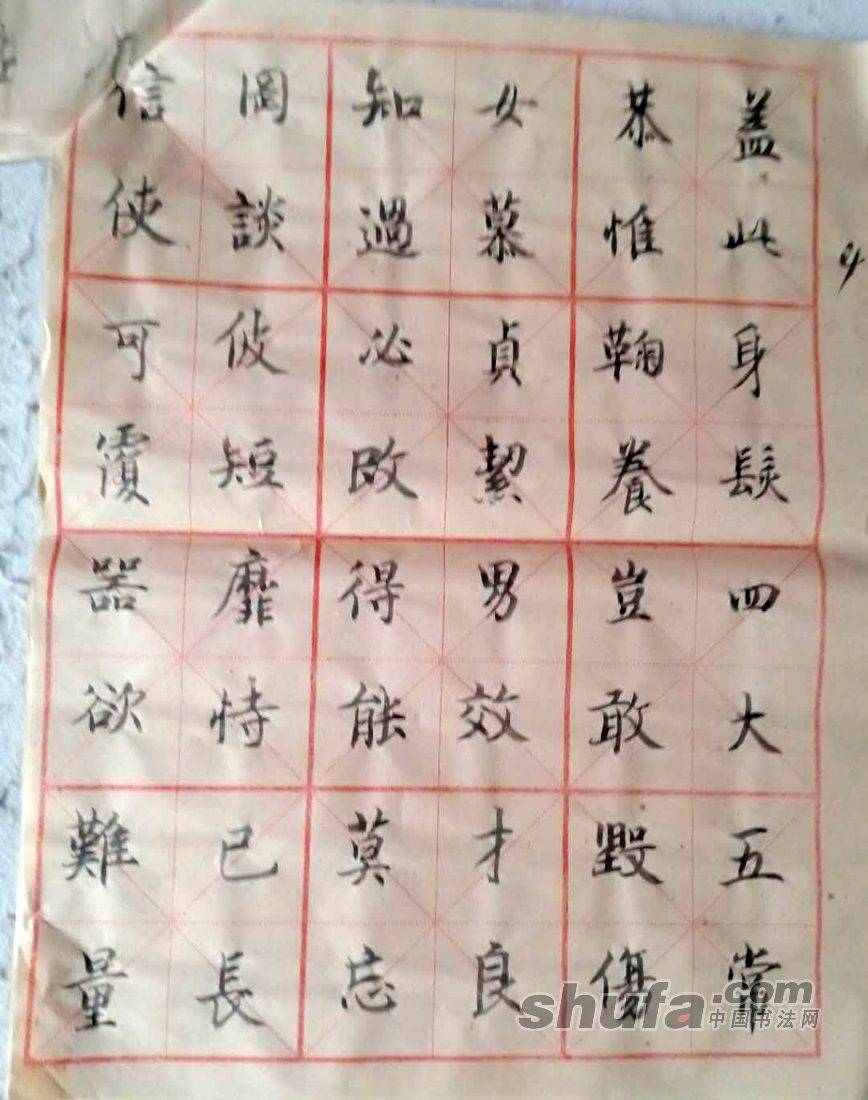 蓋此身髮四大五常
恭惟鞠養豈敢毀傷
女慕貞絜男效才良
知過必改得能莫忘
罔談彼短靡恃己長
信使可覆器欲難量
shufa.com
中国书法网